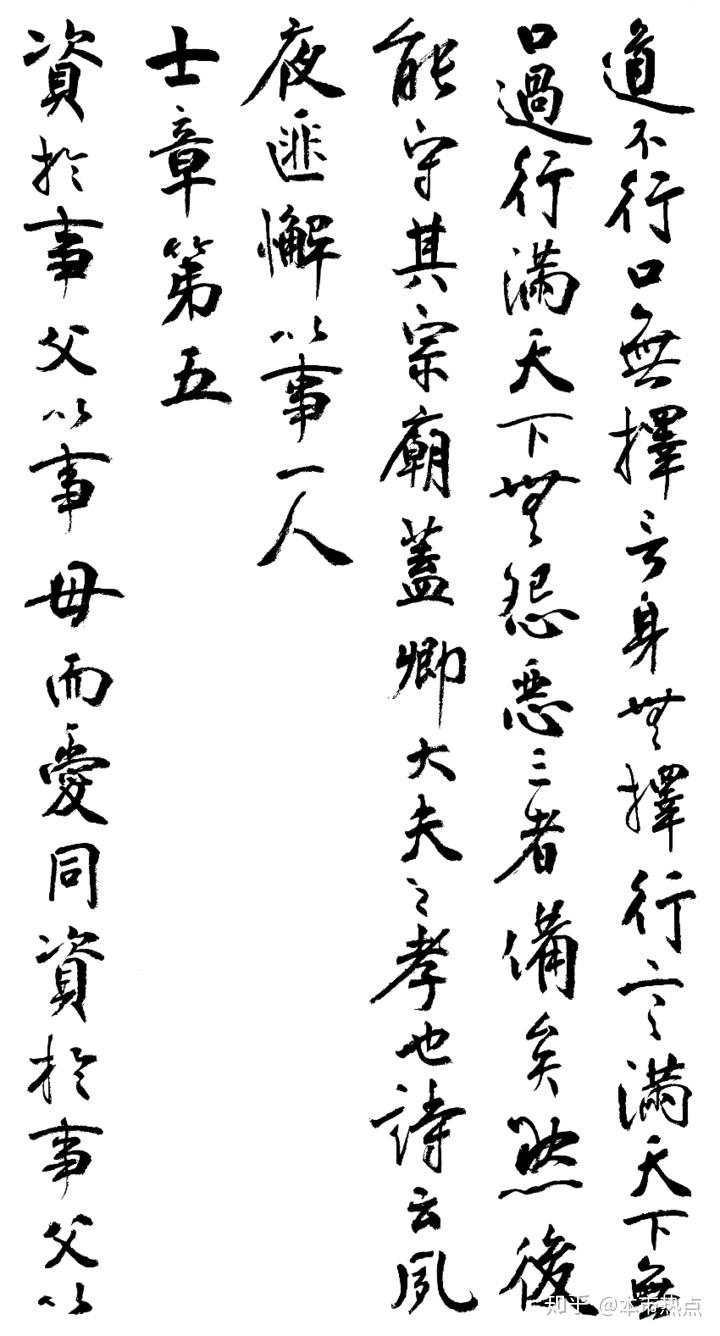 道不行口無擇言身無擇行言滿天下無
口過行滿天下無怨惡三者備矣然後
能守其宗廟蓋卿大夫之孝也詩云夙
夜匪懈以事一人
士章第五
資於事父以事母而愛同資於事父以
知乎 @本市热点